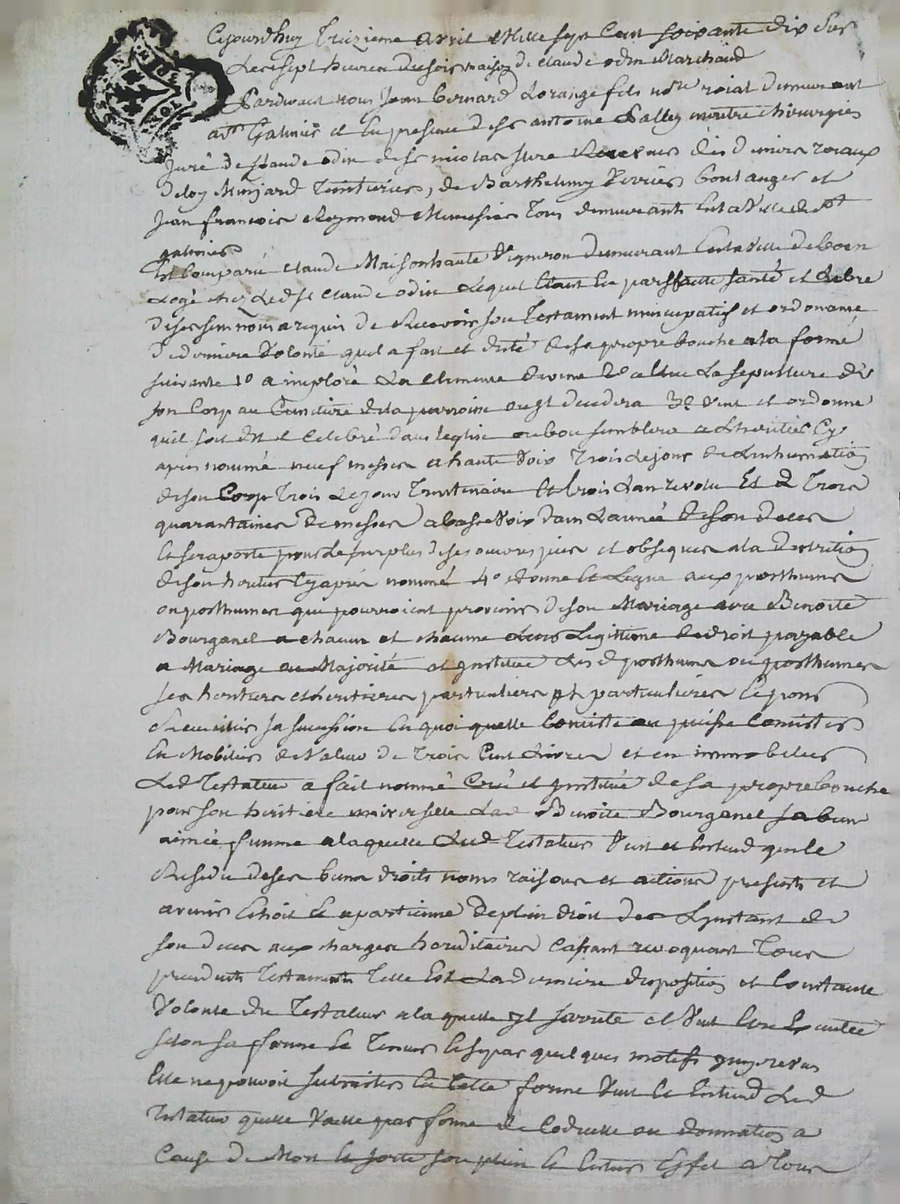 Cejourdhuy Treizieme avril Mille sept Cent soixante dix sur
Les sept heures du soir maison de claude odin Marchand
Pardevant nous Jean bernard Lorange fils no.re roial demeurant
a st Galmier et En presence de sr antoine maitre chirurgien
Juré de claude odin de sr nicolas des deniers roiaux
deloy Teinturier, de Barthelemy Verrier boulanger et
Jean francois Reymond Menusier Tous demeurants En la Ville de st
galmier
Est Comparu claude Maisonhaute Vigneron demeurant En la Ville de boen
Logé chez Led sr claude odin Lequel Etant En parffaitte santé et Libre
de ses sens nous a requis de Recevoir son Testament nuncupatif et ordonance
de derniere Volonté quil a fait et dicté de sa propre bouche a la forme
suivante 1o a imploré La clemence divine 2o a Elue La sepulture de
son Corp au Cimetiere de la parroisse ou jl decedera 3o Veut et ordonne
quil soit dit et Celebré dans leglise ou bon semblera a Lheritier Cy
apres nommé neuf messes a haute Voix Trois le jour de Linhumation
de son Corp Trois Le jour Trentenaire Et trois Lan revolu Et de Trois
quarantaines de messes a basse Voix dans Lannée de son deces
Et se raporte pour Le surplus de ses œuvres pies et obseques a la discretion
de son heritier Cy apres nommé 4o donne Et Legue aux posthume
ou posthumes qui pourroient provenir de son Mariage avec Benoite
Bourganel a chacun et chacune Leurs Legittime de droit payable
a Mariage ou Majorité et jnstitue Lesd posthume ou posthumes
ses heritiers et heritieres particuliers et particulieres Et pour
sa succession En quoi quelle Consiste ou puisse Consister
En Mobilier de Valeur de Trois Cent Livres et en immobilier
Led Testateur a fait nommé Créé et jnstitué de sa propre bouche
pour son heritiere universelle Lad Benoite Bourganel sa bien
aimée femme a laquelle Led Testateur Veut et Entend que le
Residu de ses biens droits noms raisons et actions presents et
avenir Echoit Et apartienne de plein droit des Ljnstant de
son deces aux charges hereditaires Cassant revoquant Tous
precedents Testaments Telle Est La derniere disposition et Constante
Volonté du Testateur a laquelle jl et Veut Etre Executée
selon sa forme Et Teneur Et si par quelques motifs jmprevus
Elle ne pouvoit subsister En Cette forme Veut Et Entend Led
Testateur quelle Vaille par forme de Codicille ou donnation a
Cause de Mort Et sorte son plein Et Entier Effet a Tous